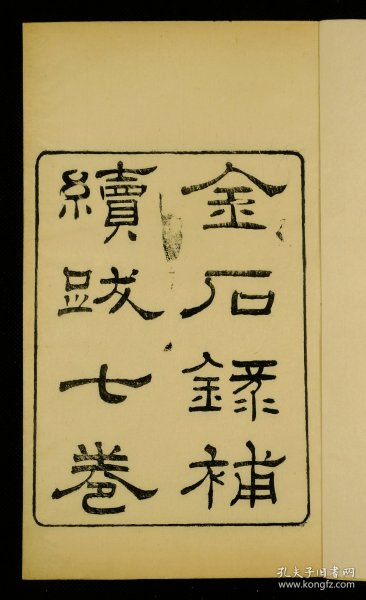 金石錄補
續跋七卷
孔夫子旧书网
www.kongfz.com